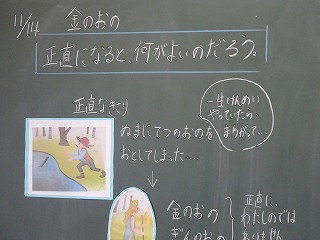 11/14
金のおの
正直になると、何がよいのだろう。
正直なきこり
一生けんめい
やっていたら、
まちがって…
ぬまにてつのおのを
おとしてしまった…
金のおの
ぎんのおの
正直に、
わたしのでは
ありません